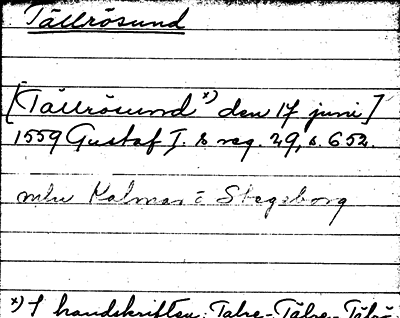 Tällrösund
[Tällrösund x) den 17 juni]
1559 Gustaf I. s reg. 29, s. 652.
mln Kalmar o Stegeborg
x) I handskriften: Talre- Tälre- Tälrö